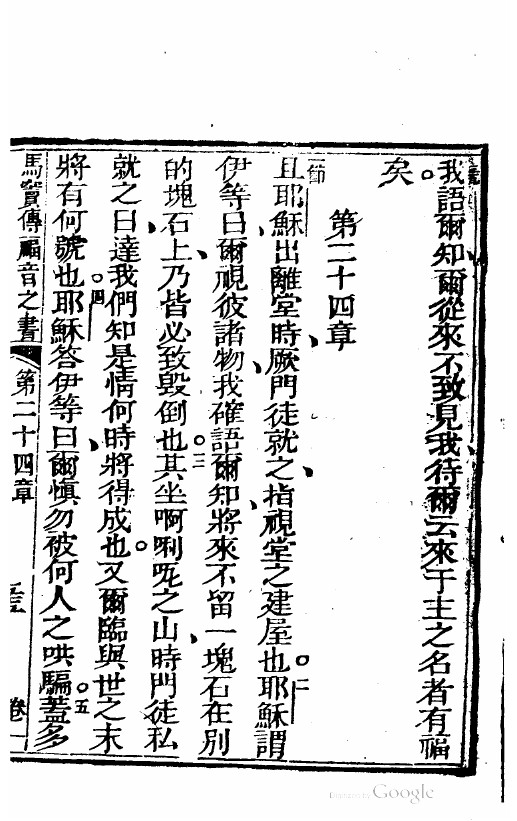 我語爾知爾從來不致見我待爾云來于主之名者有福
矣
第二十四章
一節
且耶穌出離堂時厥門徒就之指視堂之建屋也。二耶穌謂
伊等曰爾視彼諸物我確語爾知將來不留一塊石在別
的塊石上乃皆必致毀倒也。三其坐啊唎㕰之山時門徒私
就之曰達我們知是情何時將得成也。又爾臨與世之末
將有何號也。四耶穌答伊等曰爾慎勿被何人之哄騙。五蓋多
馬竇傳福音之書 第二十四章 卷一
Google